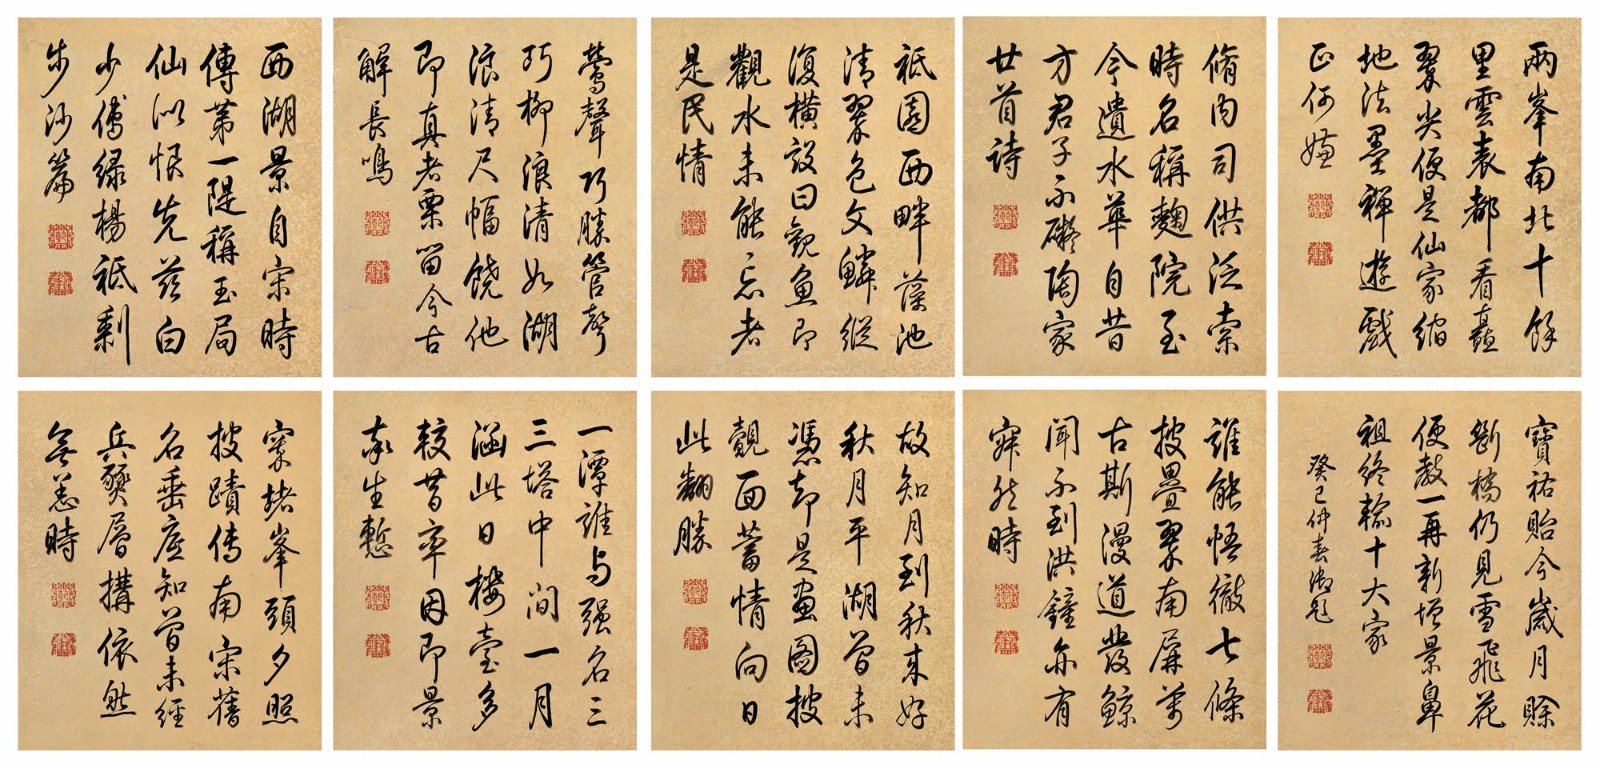 西湖景自宋時
傳第一隄稱玉局
仙似恨先茲白
少傅綠楊祇剩
步沙篇
鶯聲巧勝管聲
巧柳浪清如湖
浪清尺幅饒他
即真者栗留今古
解長鳴
祇園西畔藻池
清翠色文鱗縱
復橫設曰觀魚即
觀水未能忘者
是民情
脩內司供泛索
時名稱麴院至
今遺水華自昔
方君子不礙陶家
廿首詩
兩峯南北十餘
里雲表都看矗
翠尖便是仙家縮
地法墨禪遊戲
正何嫌
窣堵峯頭夕照
披蹟傳南宋舊
名垂底知曾未經
兵燹層搆依然
無恙時
一潭誰与强名三
三塔中間一月
涵此日樓臺多
較昔率因即景
亦生慙
故知月到秋来好
秋月平湖曾未
憑却是畫圖披
觀面蓄情向日
此翻勝
誰能悟徹七條
披疊翠南屏萬
古斯漫道發鯨
聞不到洪鐘亦有
寂然時
寶祐貽今歲月賒
斷橋仍見雪飛花
便教一再新增景鼻
祖終輸十大家
癸巳仲春御題